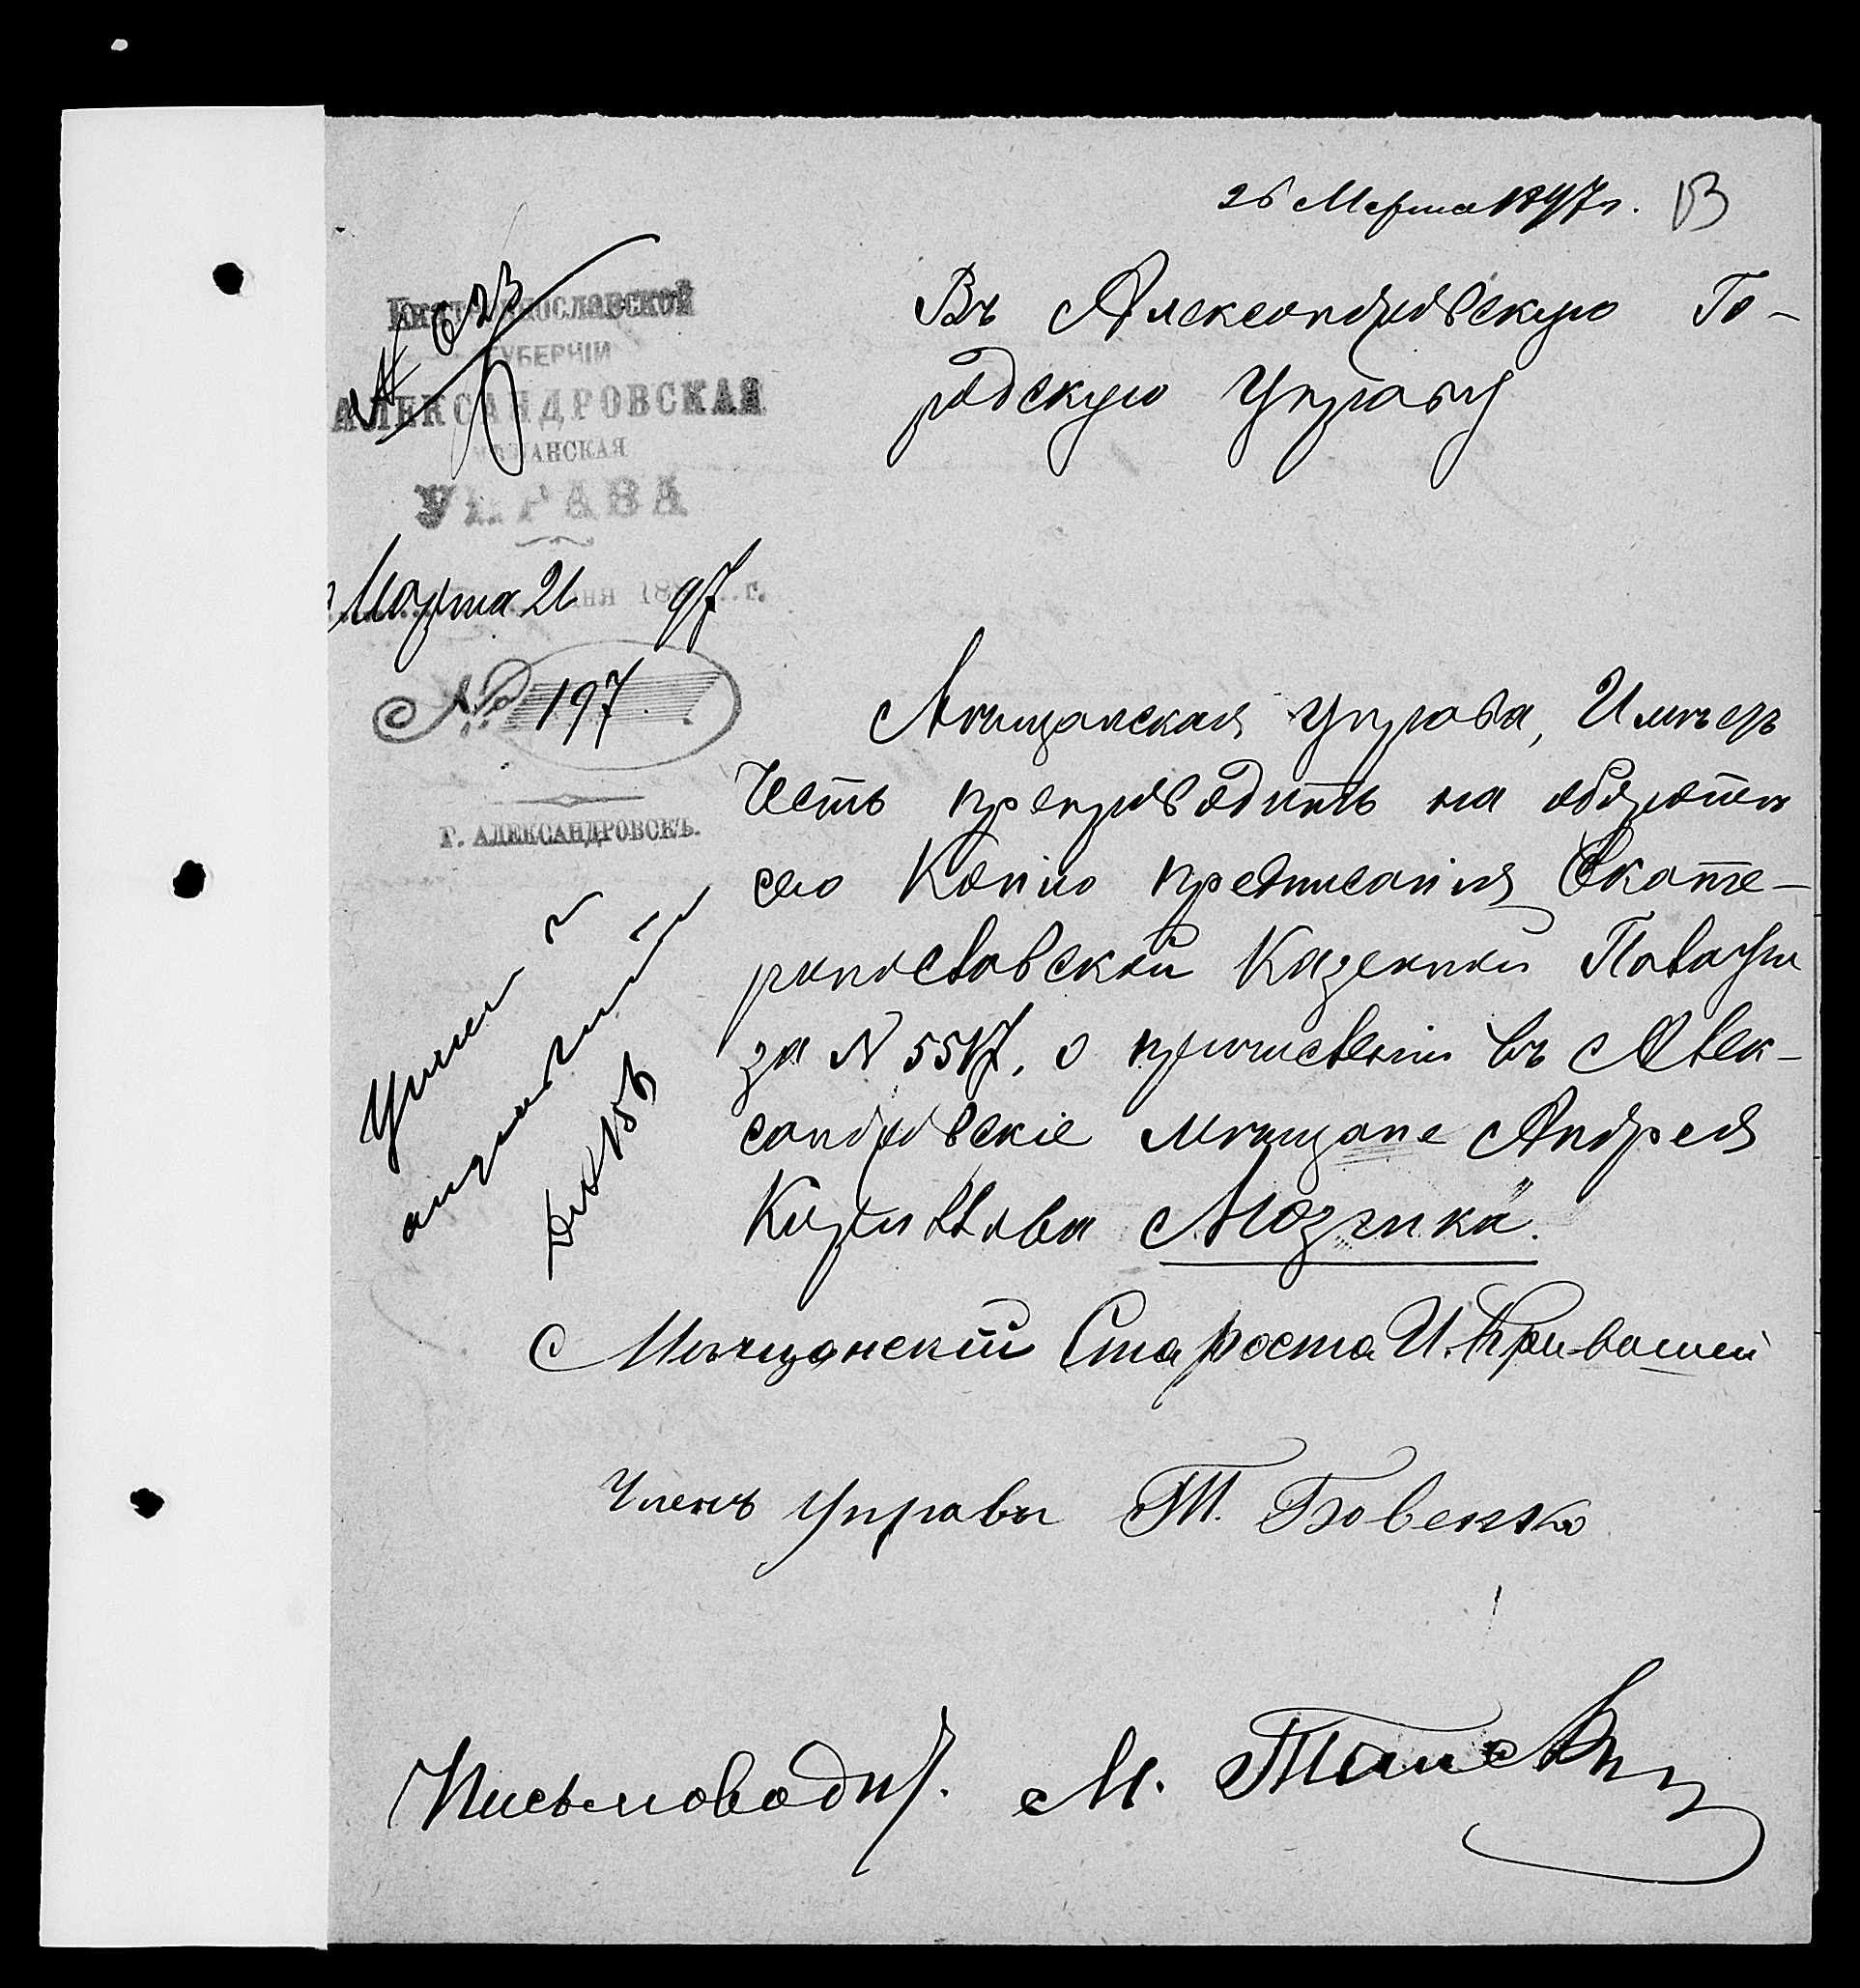 26 Марта 1897 г. 13
№ 623
Екатеринославской
ГУБЕРНІИ
АЛЕКСАНДРОВСКАЯ
МѢЩАНСКАЯ
УПРАВА
Марта 21 дня 1897 г.
№ 197
Г. АЛЕКСАНДРОВСКЪ.
Въ Александровскую Го-
родскую Управу
Мѣщанская Управа, Имѣетъ
Честь препроводить на оборотѣ
сего Копію предписанія Екате-
ринославской Казенной Палаты
за N 5517, о причисленіи въ Алек-
сандровскіе мѣщане Андрея
Кириллова Мозгина.
Мѣщанскій Староста И. Кривошей
Членъ Управы Т. Бовенко
Письмоводит. М.